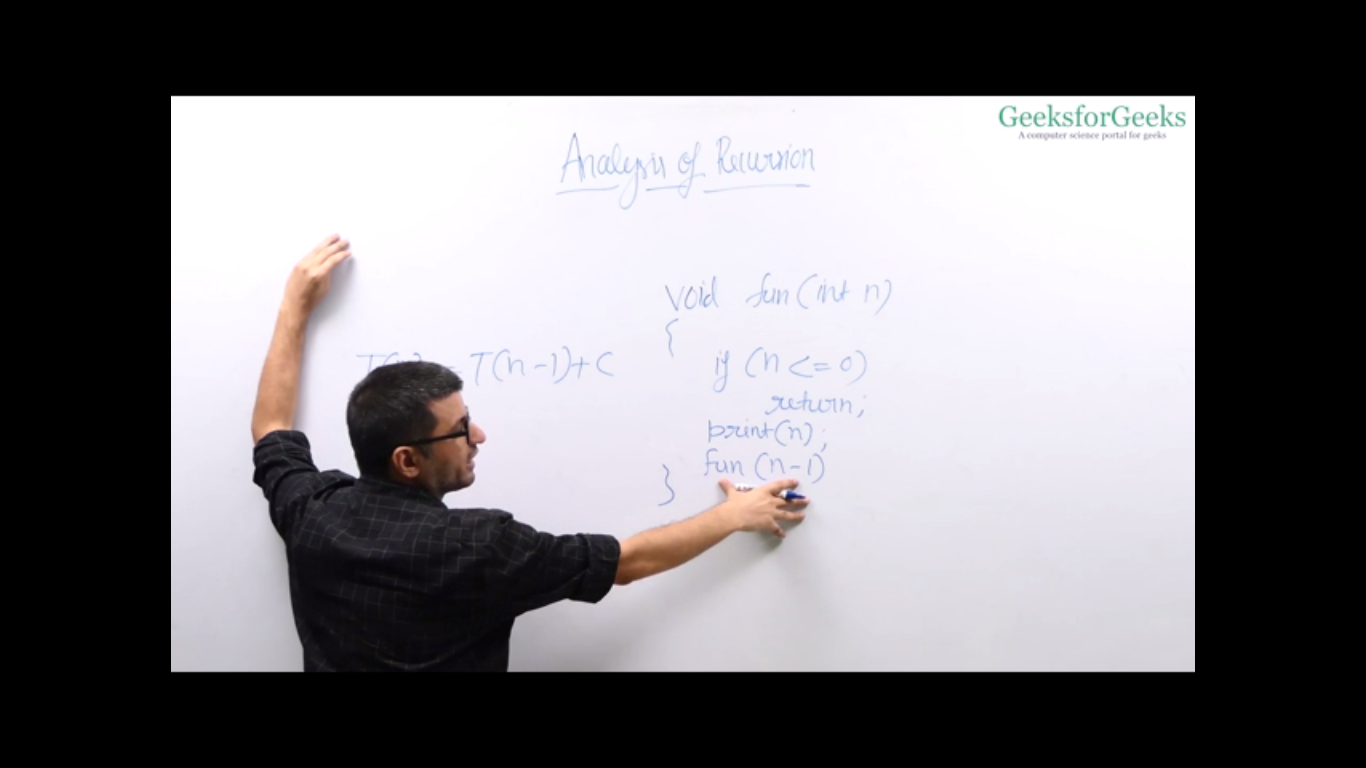 GeeksforGeeks
A computer science portal for geeks
Analysis of Recursion
void fun(int n)
{
T(n-1)+C
if (n <= 0)
return;
print(n);
fun (n-1)
}